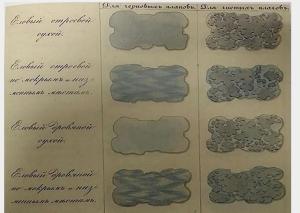 Для черновыхъ плановъ. Для чистыхъ плановъ.
Еловый строевой
сухой.
Еловый строевой
по мокрымъ и низ-
менымъ мѣстамъ.
Еловый дровяной
сухой.
Еловый дровяной
по мокрымъ и низ-
меннымъ мѣстамъ.